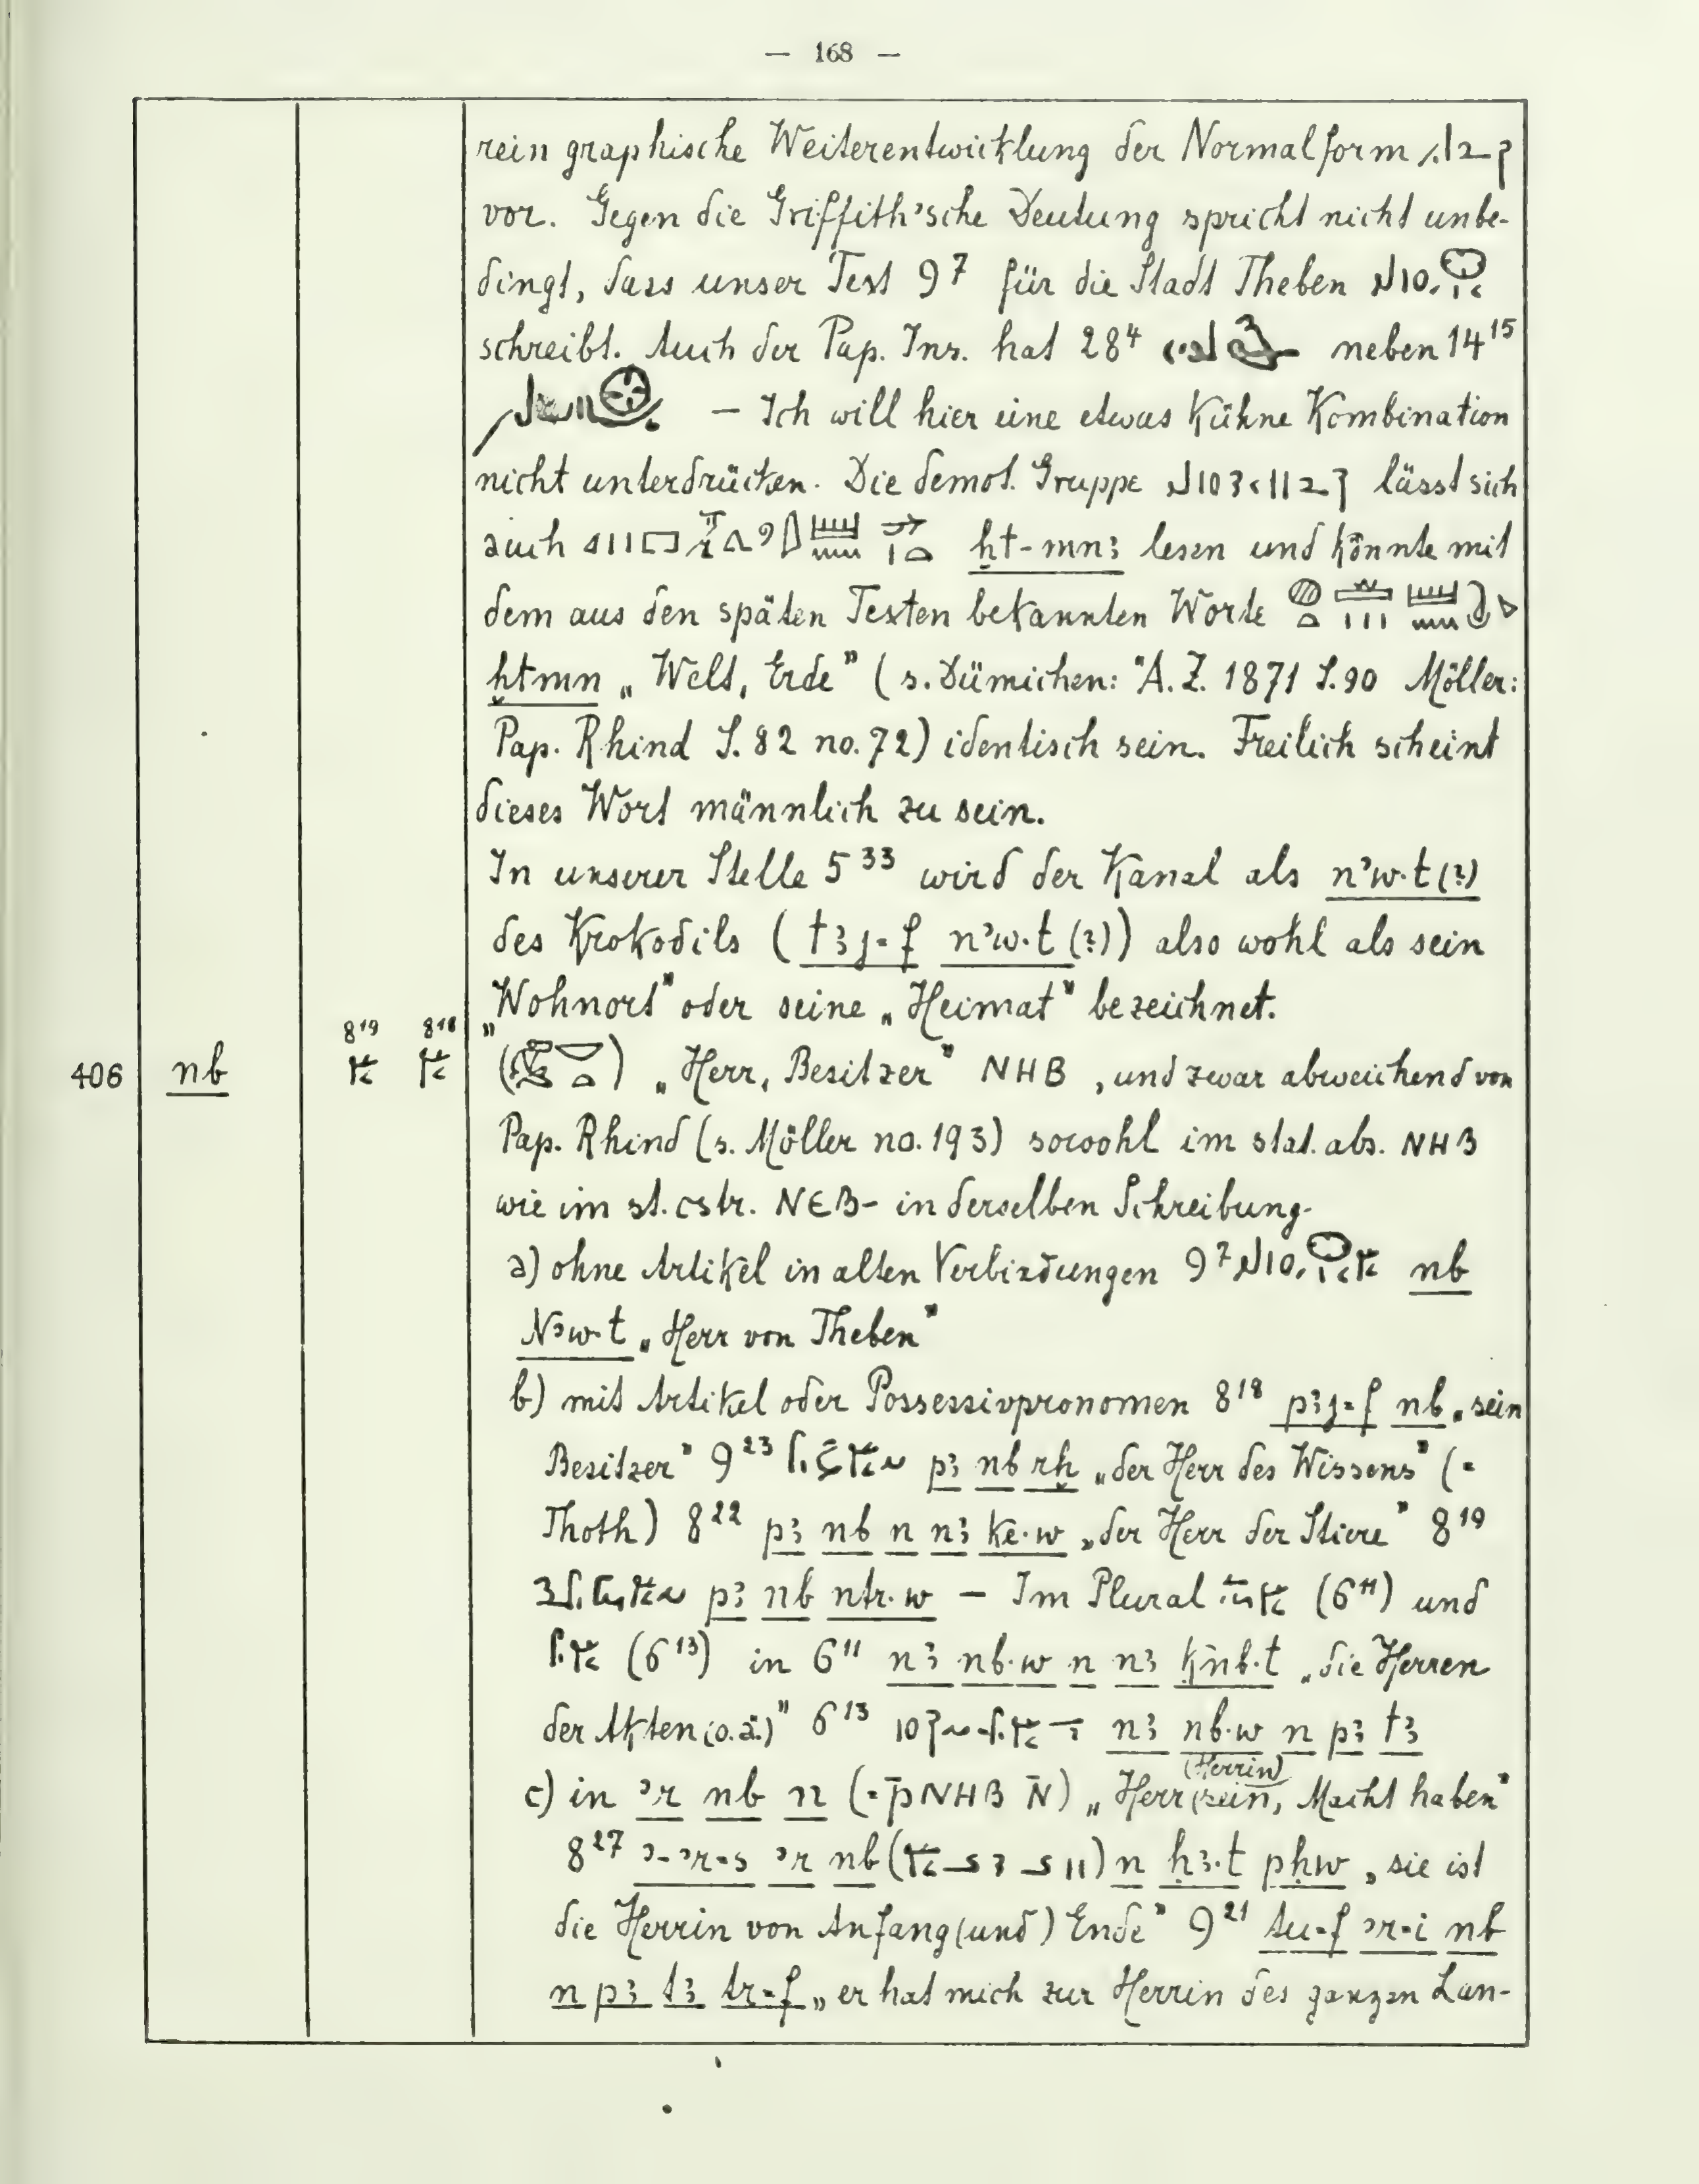 — 168 —
rein graphische Weiterentwicklung der Normalform
vor. Gegen die Griffith'sche Deutung spricht nicht unbe-
dingt, dass unser Text 9⁷ für die Stadt Theben
schreibt. Auch der Pap. Ins. hat 28⁴ neben 14¹⁵
— Ich will hier eine etwas kühne Kombination
nicht unterdrücken. Die demot. Gruppe lässt sich
auch ẖt-mnꜣ lesen und könnte mit
dem aus den späten Texten bekannten Worte
ẖtmn „Welt, Erde" (s. Dümichen: Ä.Z. 1871 S. 90 Möller:
Pap. Rhind S. 82 no. 72) identisch sein. Freilich scheint
dieses Wort männlich zu sein.
In unserer Stelle 5³³ wird der Kanal als n’w·t (?)
des Krokodils (tꜣj=f n’w·t (?)) also wohl als sein
„Wohnort" oder seine „Heimat" bezeichnet.
406 nb 8¹⁹ 8¹⁸ ( ) „Herr, Besitzer" ⲚⲎⲂ, und zwar abweichend von
Pap. Rhind (s. Möller no. 193) sowohl im stat. abs. ⲚⲎⲂ
wie im st. cstr. ⲚⲈⲂ- in derselben Schreibung.
a) ohne Artikel in alten Verbindungen 9⁷ nb
N’w·t „Herr von Theben"
b) mit Artikel oder Possessivpronomen 8¹⁸ pꜣj=f nb „sein
Besitzer" 9²³ pꜣ nb rḫ „der Herr des Wissens" (=
Thoth) 8²² pꜣ nb n nꜣ ke·w „der Herr der Stiere" 8¹⁹
pꜣ nb ntr·w — Im Plural (6¹¹) und
(6¹³) in 6¹¹ nꜣ nb·w n nꜣ ḳnb·t „die Herren
der Akten (o.ä.)" 6¹³ nꜣ nb·w n pꜣ tꜣ
c) in ’r nb n (= ⲢⲚⲎⲂ Ⲛ̄) „Herr (Herrin) sein, Macht haben"
8²⁷ ’-’r=s ’r nb ( ) n ḥꜣ·t pḥw „sie ist
die Herrin von Anfang (und) Ende" 9²¹ tu=f ’r=i nb
n pꜣ tꜣ tr=f „er hat mich zur Herrin des ganzen Lan-